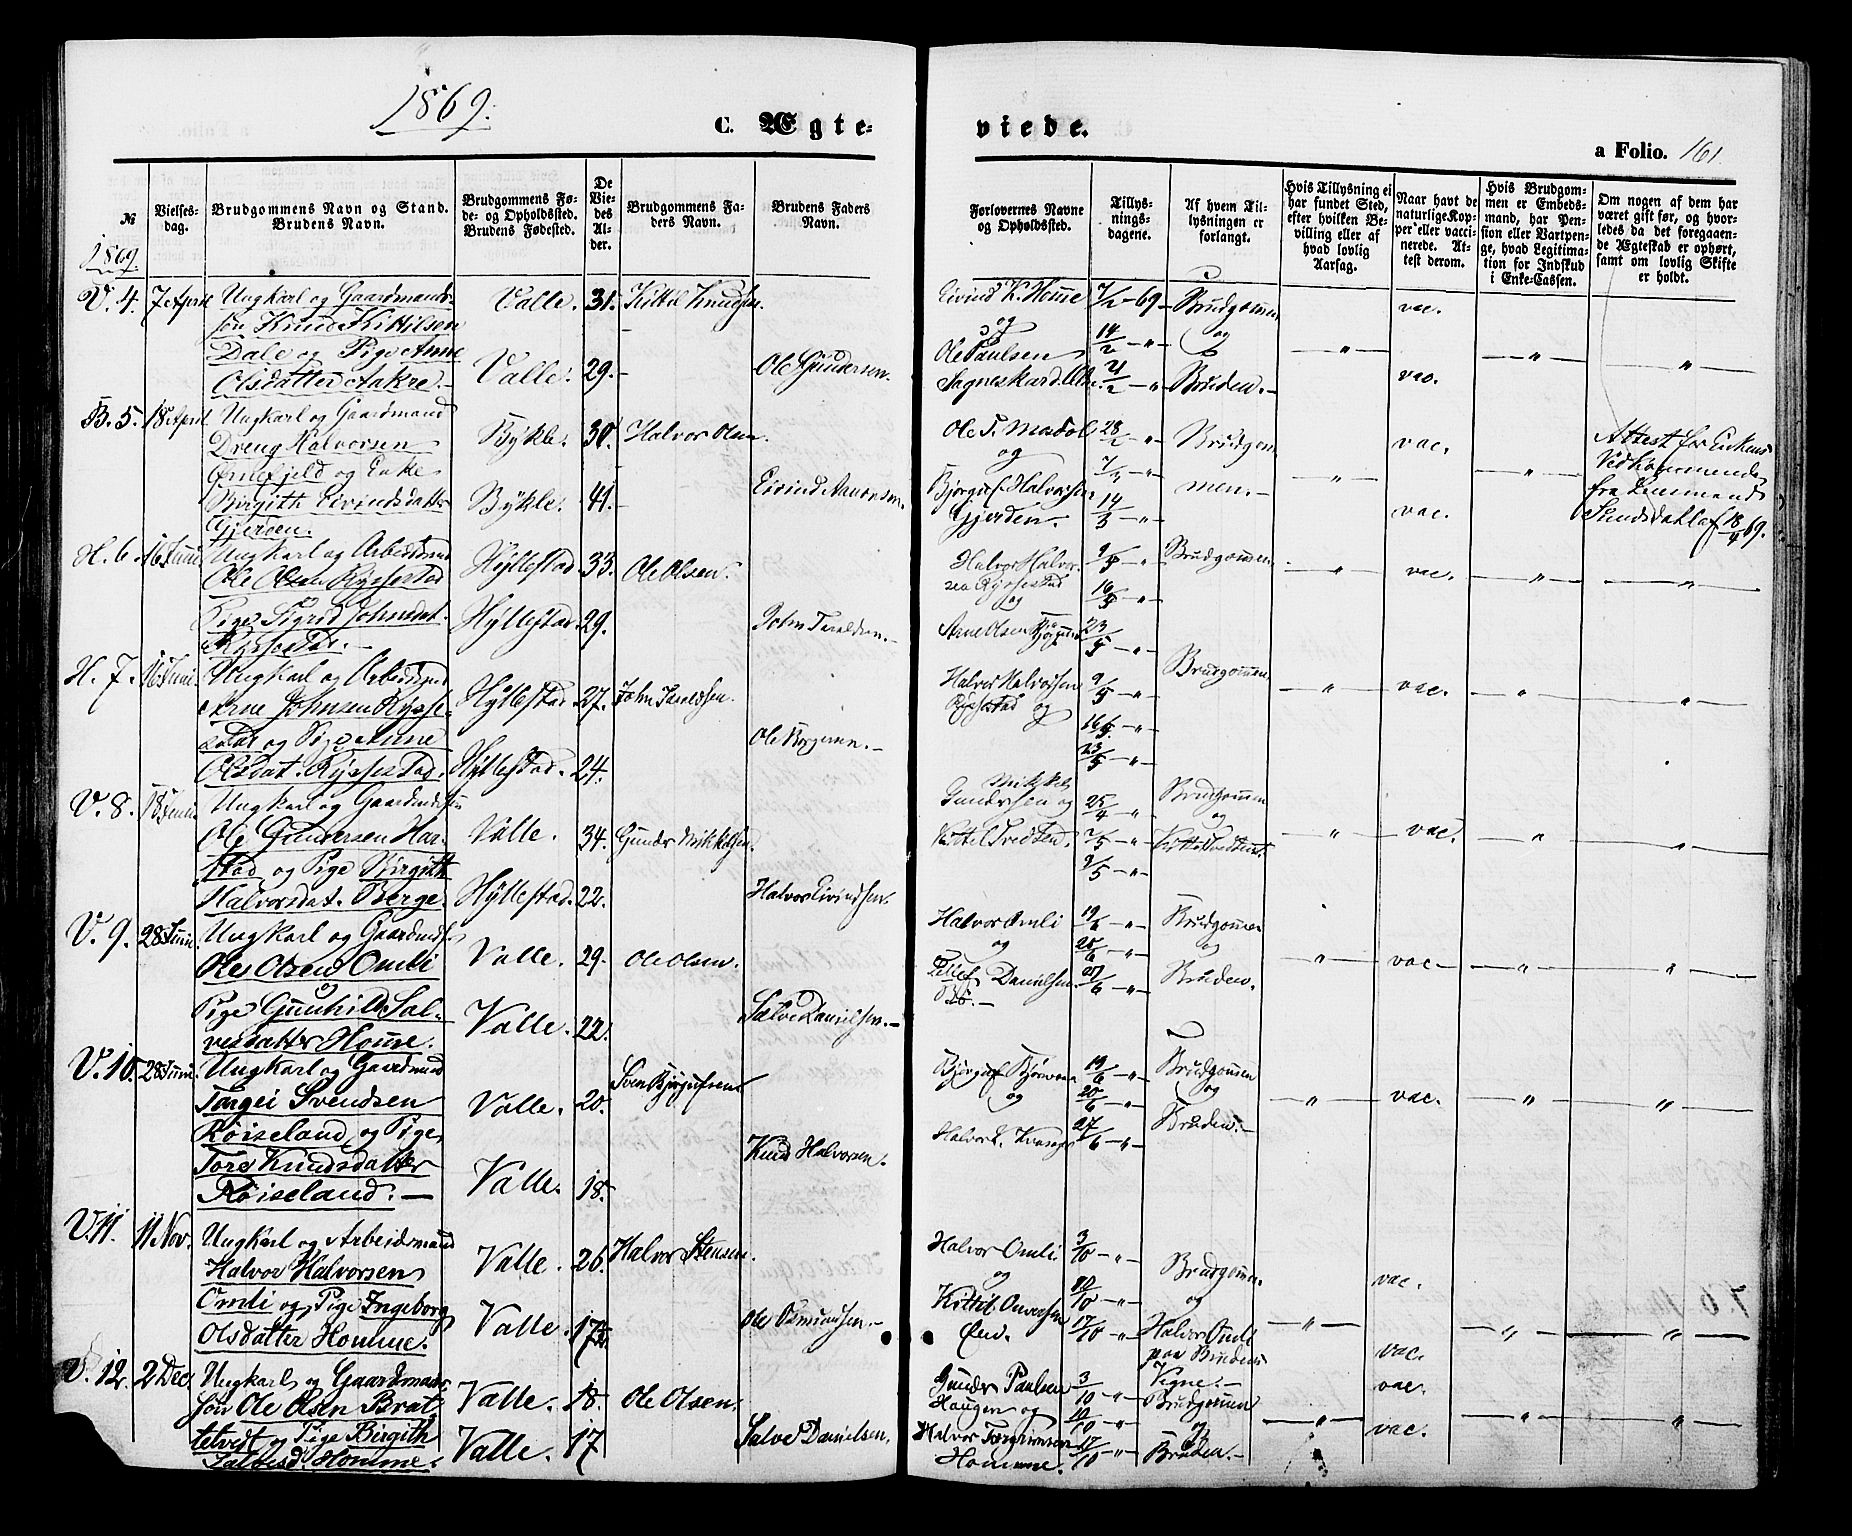 1869.
C. Ægte-
viede.
a Folio. 161.
№
Vielses-
dag.
Brudgommens Navn og Stand.
Brudens Navn.
Brudgommens Fø-
de- og Opholdssted.
Brudens Fødested.
De
Vie-
des
Al-
der.
Brudgommens Fa-
ders Navn.
Brudens Faders
Navn.
Forlovernes Navne
og Opholdssted.
Tillys-
nings-
dagene.
Af hvem Til-
lysningen er
forlangt.
Hvis Tillysning ei
har fundet Sted,
efter hvilken Be-
villing eller af
hvad lovlig
Aarsag.
Naar havt de
naturlige Kop-
per eller vacci-
nerede. At-
test derom.
Hvis Brudgom-
men er Embeds-
mand, har Pen-
sion eller Vartpen-
ge, hvad Legitima-
tion for Indskud
i Enke-Cassen.
Om nogen af dem har
været gift før, og hvor-
ledes da det foregaaen-
de Ægteskab er ophørt,
samt om lovlig Skifte
er holdt.
1869.
V. 4. 7 April Ungkarl og Gaardmands- Valle. 31. Kittil Knudsen Eivind K. Homme 7/2 - 69 - Brudgommen vac.
søn Knud Kittilsen og 14/2 - " - og
Dale og Pige Anne Valle. 29. Ole Gundersen. Ole Paulsen
Olsdatter Aakre. 21/2 - " Bruden. vac.
B. 5. 18 April Ungkarl og Gaardmand Bykle. 30. Halvor Olsen. Ole T. Mosdøl 28/2 - " Brudgom- vac. Attest for Enkens
Dreng Halvorsen og 7/3 - " men. Vedkommende
Ørnefjeld og Enke Bykle. 41. Eivind Aaversen. Bjørguf Halvorsen 14/3 - " fra Lensmand
Birgith Eivindsdatter Gjerden. vac.
Gjersen.
H. 6. 16 Juni Ungkarl og Arbeidsmd Hyllestad 33. Ole Olsen. Halvor Halvor- 9/5 - " Brudgommen vac.
Ole Olsen Ryssestad sen Ryssestad 16/5 - "
Pige Sigrid Johnsdat. Hyllestad. 29. John Taraldsen. og Arne Olsen 23/5 - "
Ryssestad.
H. 7. 16 Juni Ungkarl og Arbeidsmd Hyllestad 27. John Taraldsen. Halvor Halvorsen 9/5 - " Brudgommen. vac.
Arne Johnsen Rysse- Ryssestad og 16/5 - "
stad og Pige Anne Ole Torgersen. 23/5 - "
Olsdat. Ryssestad. Hyllestad. 24.
V. 8. 18 Juni Ungkarl og Gaardmandssøn Mikkel Brudgommen
Ole Gundersen Haa- Valle. 34. Gunder Mikkelsen Gundersen og 25/4 - " og vac.
stad og Pige Birgith Kittel Tvedten. 2/5 - " Kittel Tvedten.
Halvorsdat. Berge. Hyllestad. 22. Halvor Eivindsen. 9/5 - "
V. 9. 28 Juni Ungkarl og Gaardmds. Valle. 29. Ole Olsen. Halvor Omli 19/6 - " Brudgommen vac.
Ole Olsen Omli og 20/6 - " og
Pige Gunhild Sal- Valle. 22. Salve Danielsen. Tellef Danielsen 27/6 - " Bruden.
vesdatter Homme.
V. 10. 28 Juni Ungkarl og Gaardmand Sven Bjørgufsen Bjørguf 19/6 - " Brudgommen
Torgei Svendsen Valle. 20. og 20/6 - " og vac.
Røiseland og Pige Halvor K. 27/6 - " Bruden.
Tore Knudsdatter Valle. 18. Knud Halvorsen.
Røiseland.
V. 11. 11 Nov. Ungkarl og Arbeidsmand Valle. 26. Halvor Stensen. Halvor Omli 3/10 - " Brudgommen vac.
Halvor Halvorsen og 10/10 - " og
Omli og Pige Ingeborg Valle. 17 Ole Osmundsen. Kittil 17/10 - " Halvor Omli
Olsdatter Homme. paa Brudens vac.
Vegne.
V. 12. 2 Dec. Ungkarl og Gaardmands- Valle. 18. Ole Olsen. Gunder Paulsen 3/10 - " Brudgommen vac.
søn Ole Olsen Brat- Haugen og 10/10 og
tetveit og Pige Birgith Valle. 17 Salve Danielsen. Halvor Torgrimsen 17/10 - " Bruden. vac.
Salvesd. Homme. Homme.